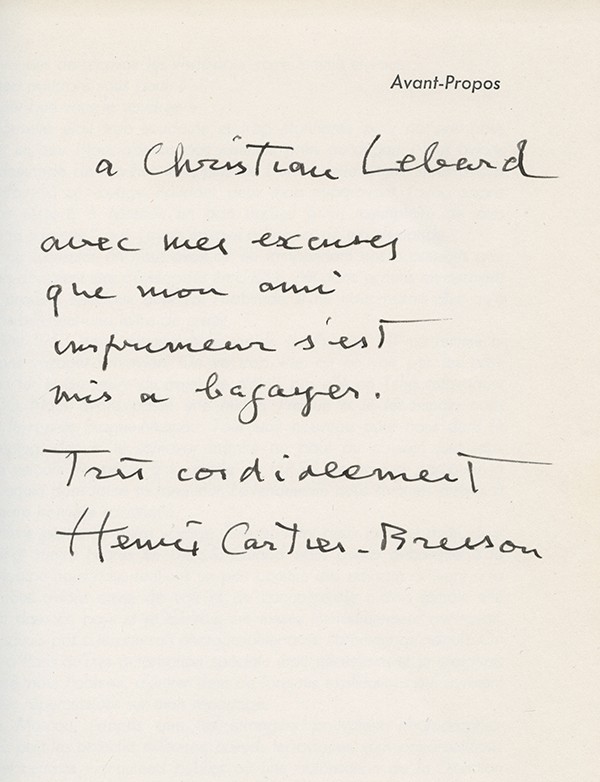 Avant-Propos
a Christian Lebard
avec mes excuses
que mon ami
imprimeur s'est
mis a bagayer.
Très cordialement
Henri Cartier-Bresson